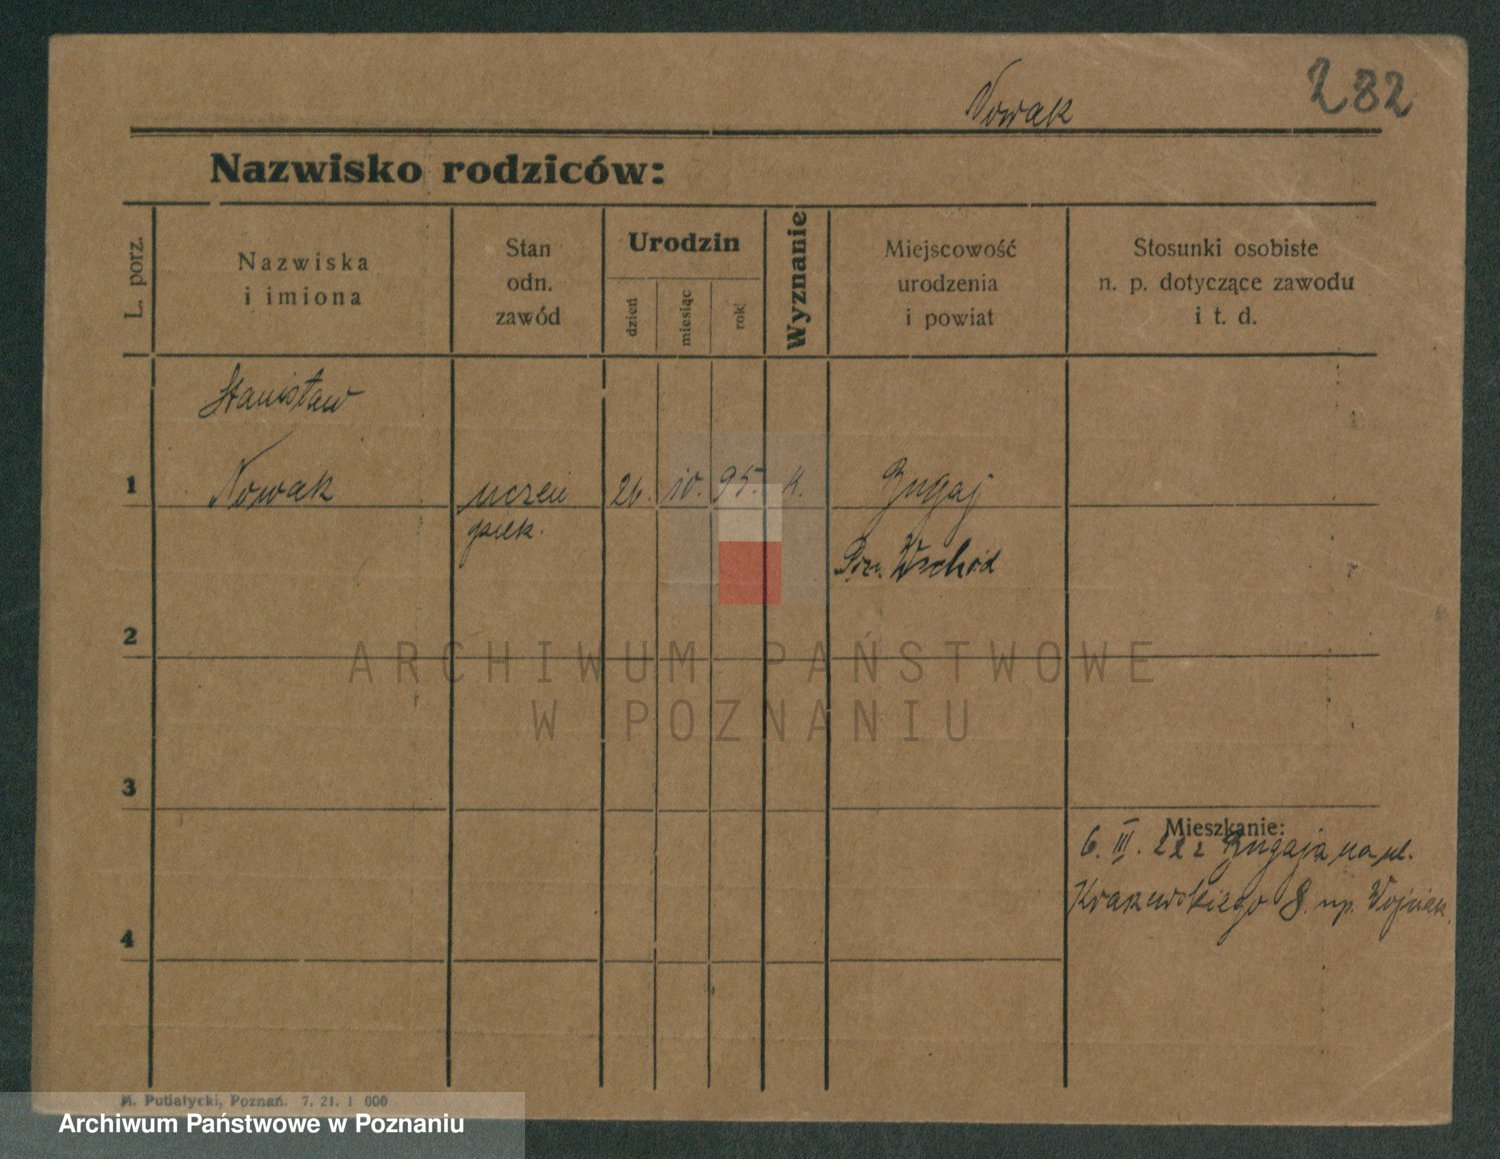 Nowak 282
Nazwisko rodziców:
L. porz.
Nazwiska
i imiona
Stan
odn.
zawód
Urodzin
dzień
miesiąc
rok
Wyznanie
Miejscowość
urodzenia
i powiat
Stosunki osobiste
n. p. dotyczące zawodu
i t. d.
Stanisław
1 Nowak uczeń 26. 10. 95. k. Bugaj
Poz. Wschód
2
ARCHIWUM PAŃSTWOWE
W POZNANIU
3
Mieszkanie:
6. III. 22 z Bugaja na ul.
8. np. Wojciak
4
M. Putiatycki, Poznań. 7. 21. 1 000
Archiwum Państwowe w Poznaniu